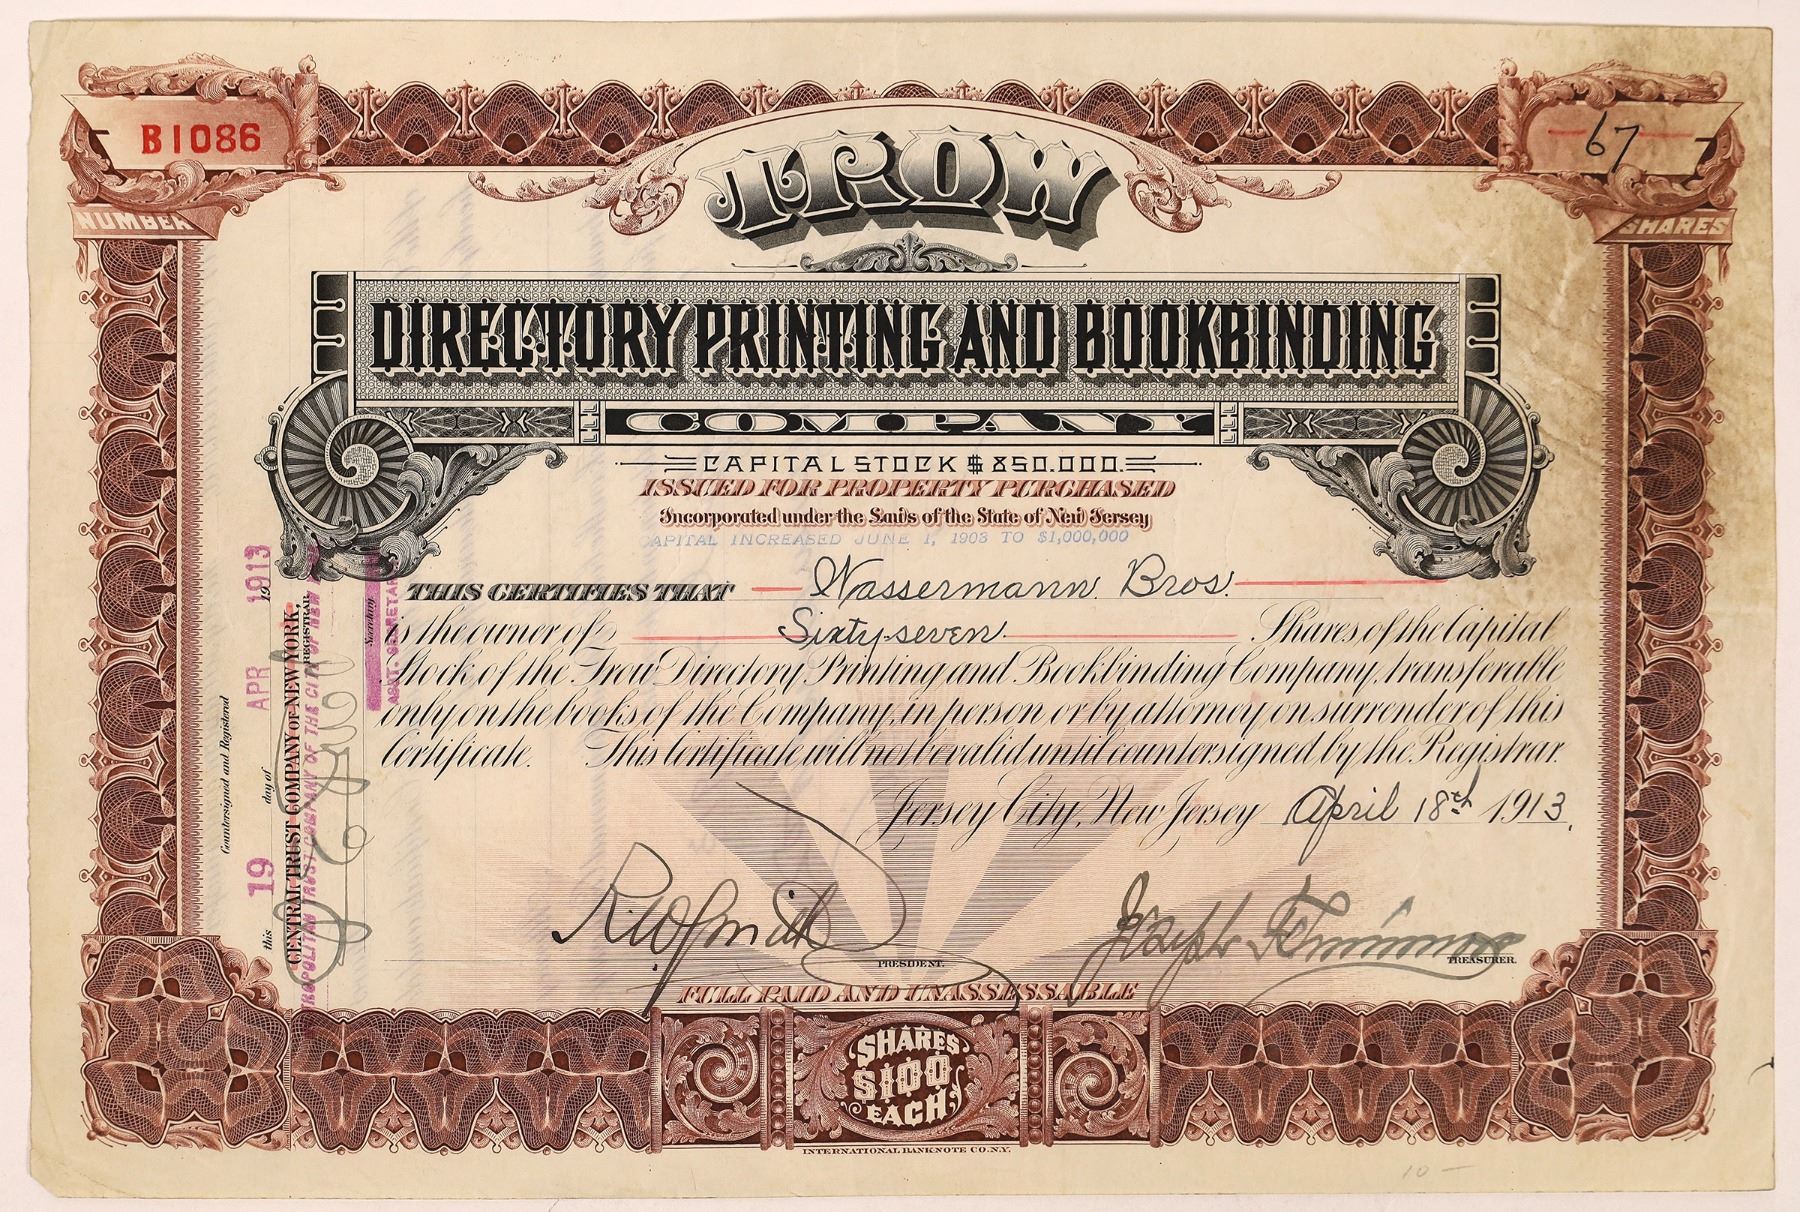 B1086
NUMBER
67
SHARES
TROW
DIRECTORY PRINTING AND BOOKBINDING
COMPANY
CAPITAL STOCK $850,000.
ISSUED FOR PROPERTY PURCHASED
Incorporated under the Laws of the State of New Jersey
CAPITAL INCREASED JUNE 1, 1903 TO $1,000,000
THIS CERTIFIES THAT Wassermann Bros.
is the owner of Sixty-seven Shares of the Capital
Stock of the Trow Directory Printing and Bookbinding Company, transferable
only on the books of the Company, in person or by attorney on surrender of this
Certificate. This Certificate will not be valid until countersigned by the Registrar.
Jersey City, New Jersey April 18th 1913.
PRESIDENT.
TREASURER.
FULL PAID AND UNASSESSABLE
SHARES
$100
EACH
INTERNATIONAL BANKNOTE CO. N.Y.
Countersigned and Registered
this 19 day of APR 1913 191
CENTRAL TRUST COMPANY OF NEW YORK,
REGISTRAR
METROPOLITAN TRUST COMPANY OF THE CITY OF NEW YORK
Secretary
ASST. SECRETARY
10-